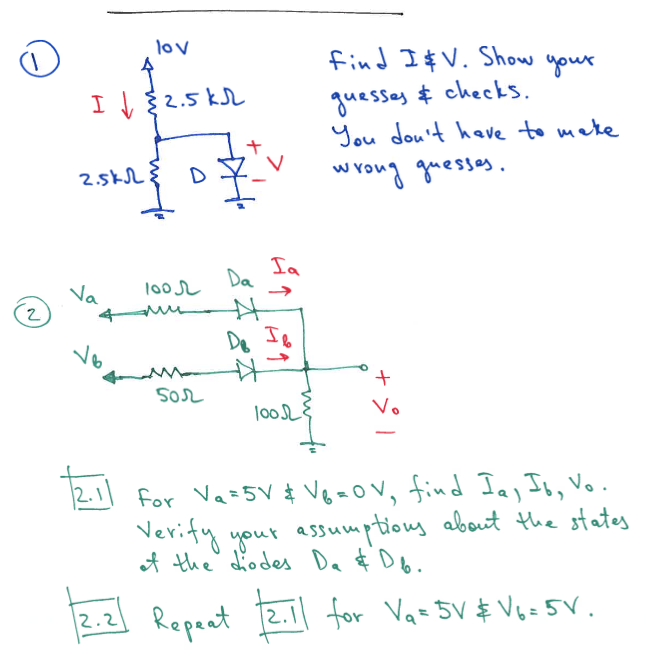 1
10V
I
2.5 kΩ
2.5kΩ
D
+
V
−
Find I & V. Show your
guesses & checks.
You don't have to make
wrong guesses.
2
Va
100Ω
Da
Ia
Vb
50Ω
Db
Ib
100Ω
+
Vo
−
2.1 For Va=5V & Vb=0V, find Ia, Ib, Vo.
Verify your assumptions about the states
of the diodes Da & Db.
2.2 Repeat 2.1 for Va=5V & Vb=5V.